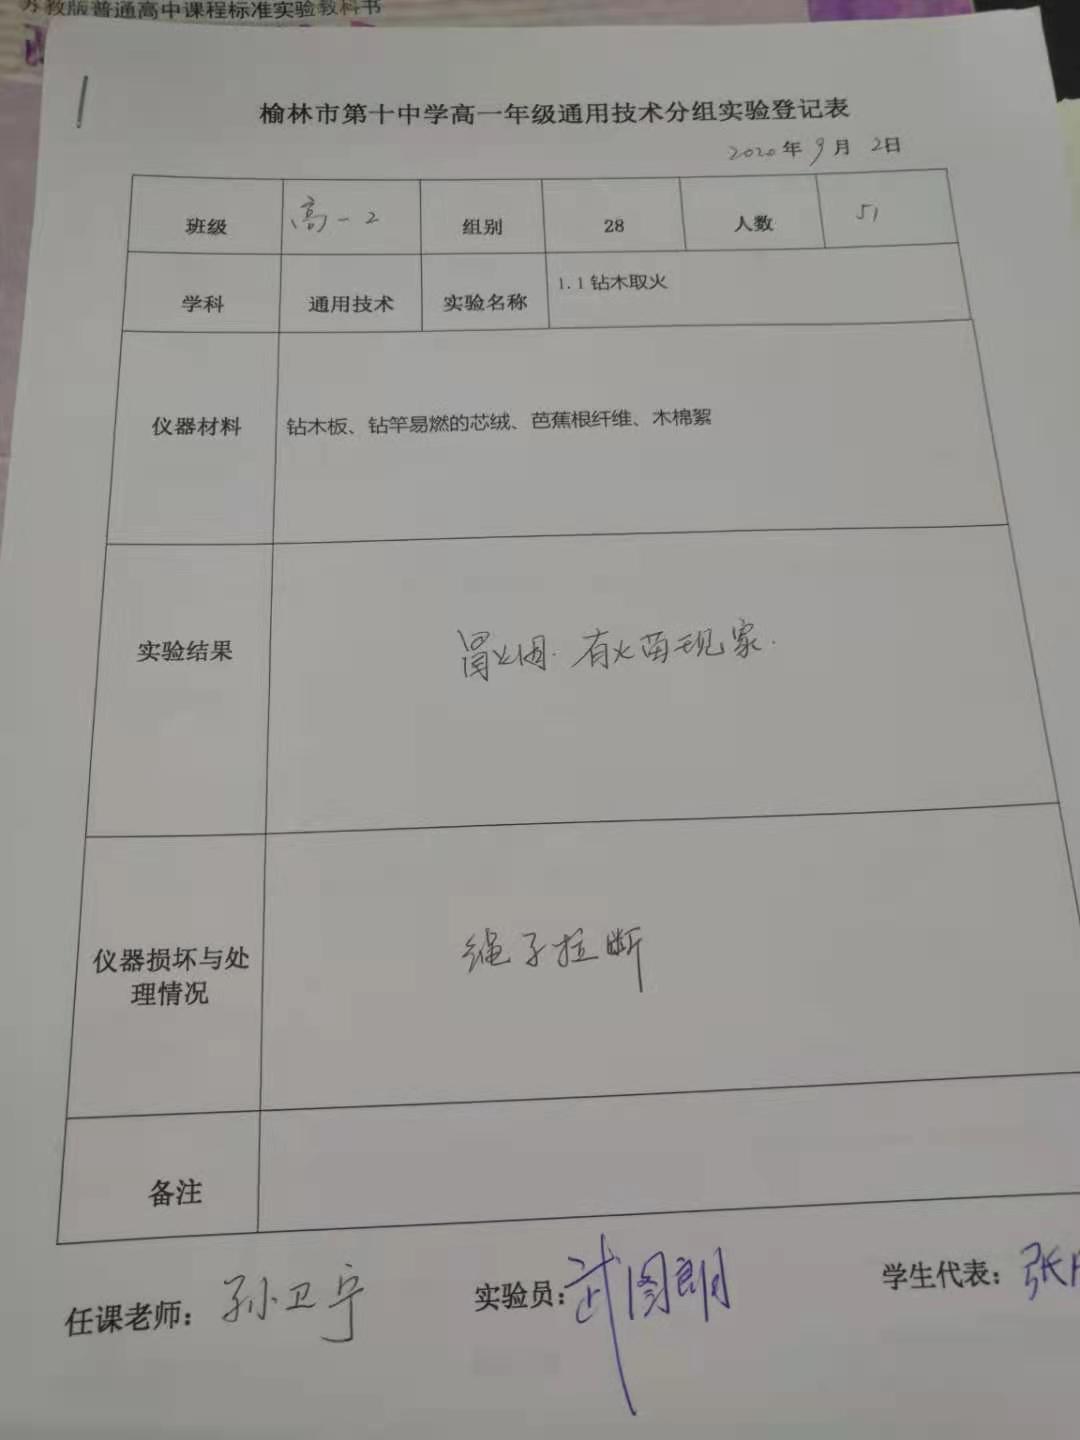 苏教版普通高中课程标准实验教科书
榆林市第十中学高一年级通用技术分组实验登记表
2020年9月2日
班级 高一2 组别 28 人数 51
学科 通用技术 实验名称 1.1钻木取火
仪器材料 钻木板、钻竿易燃的芯绒、芭蕉根纤维、木棉絮
实验结果 冒火烟.有火苗现象.
仪器损坏与处
理情况 绳子拉断
备注
任课老师：孙卫宁 实验员：武图朗 学生代表：张